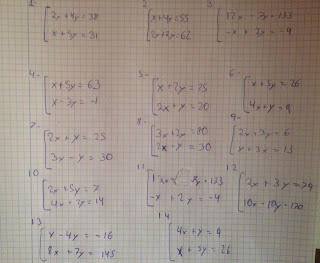 1-
2x+4y=38
x+5y=31
2.
x+4y=55
2x+3y=62
3)
12x-7y=133
-x+2y=-9
4.-
x+5y=63
x-3y=-1
5.-
x+2y=25
2x+y=20
6-
x+5y=26
4x+y=9
7-
2x+y=25
3x-y=30
8-
3x+2y=80
2x-y=30
9-
2x+3y=6
y+3x=15
10
2x+5y=7
4x+7y=14
11
-x+2y=-4
12
2x+3y=79
10x-10y=120
13
x-4y=-16
8x+7y=145
14
4x+y=9
x+5y=26